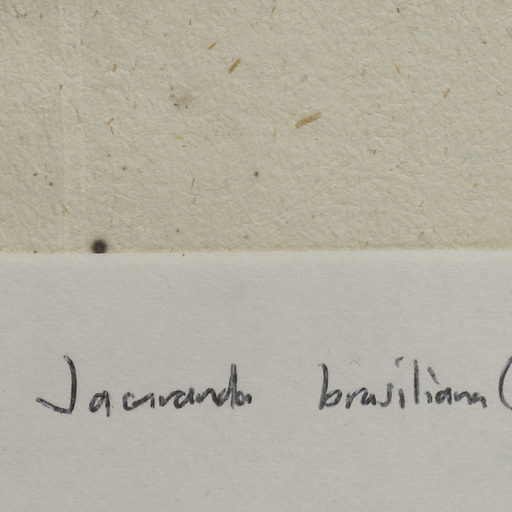 Jacaranda brasiliana (